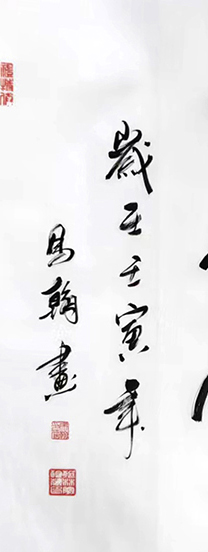 歲在壬寅年
馬翰畫